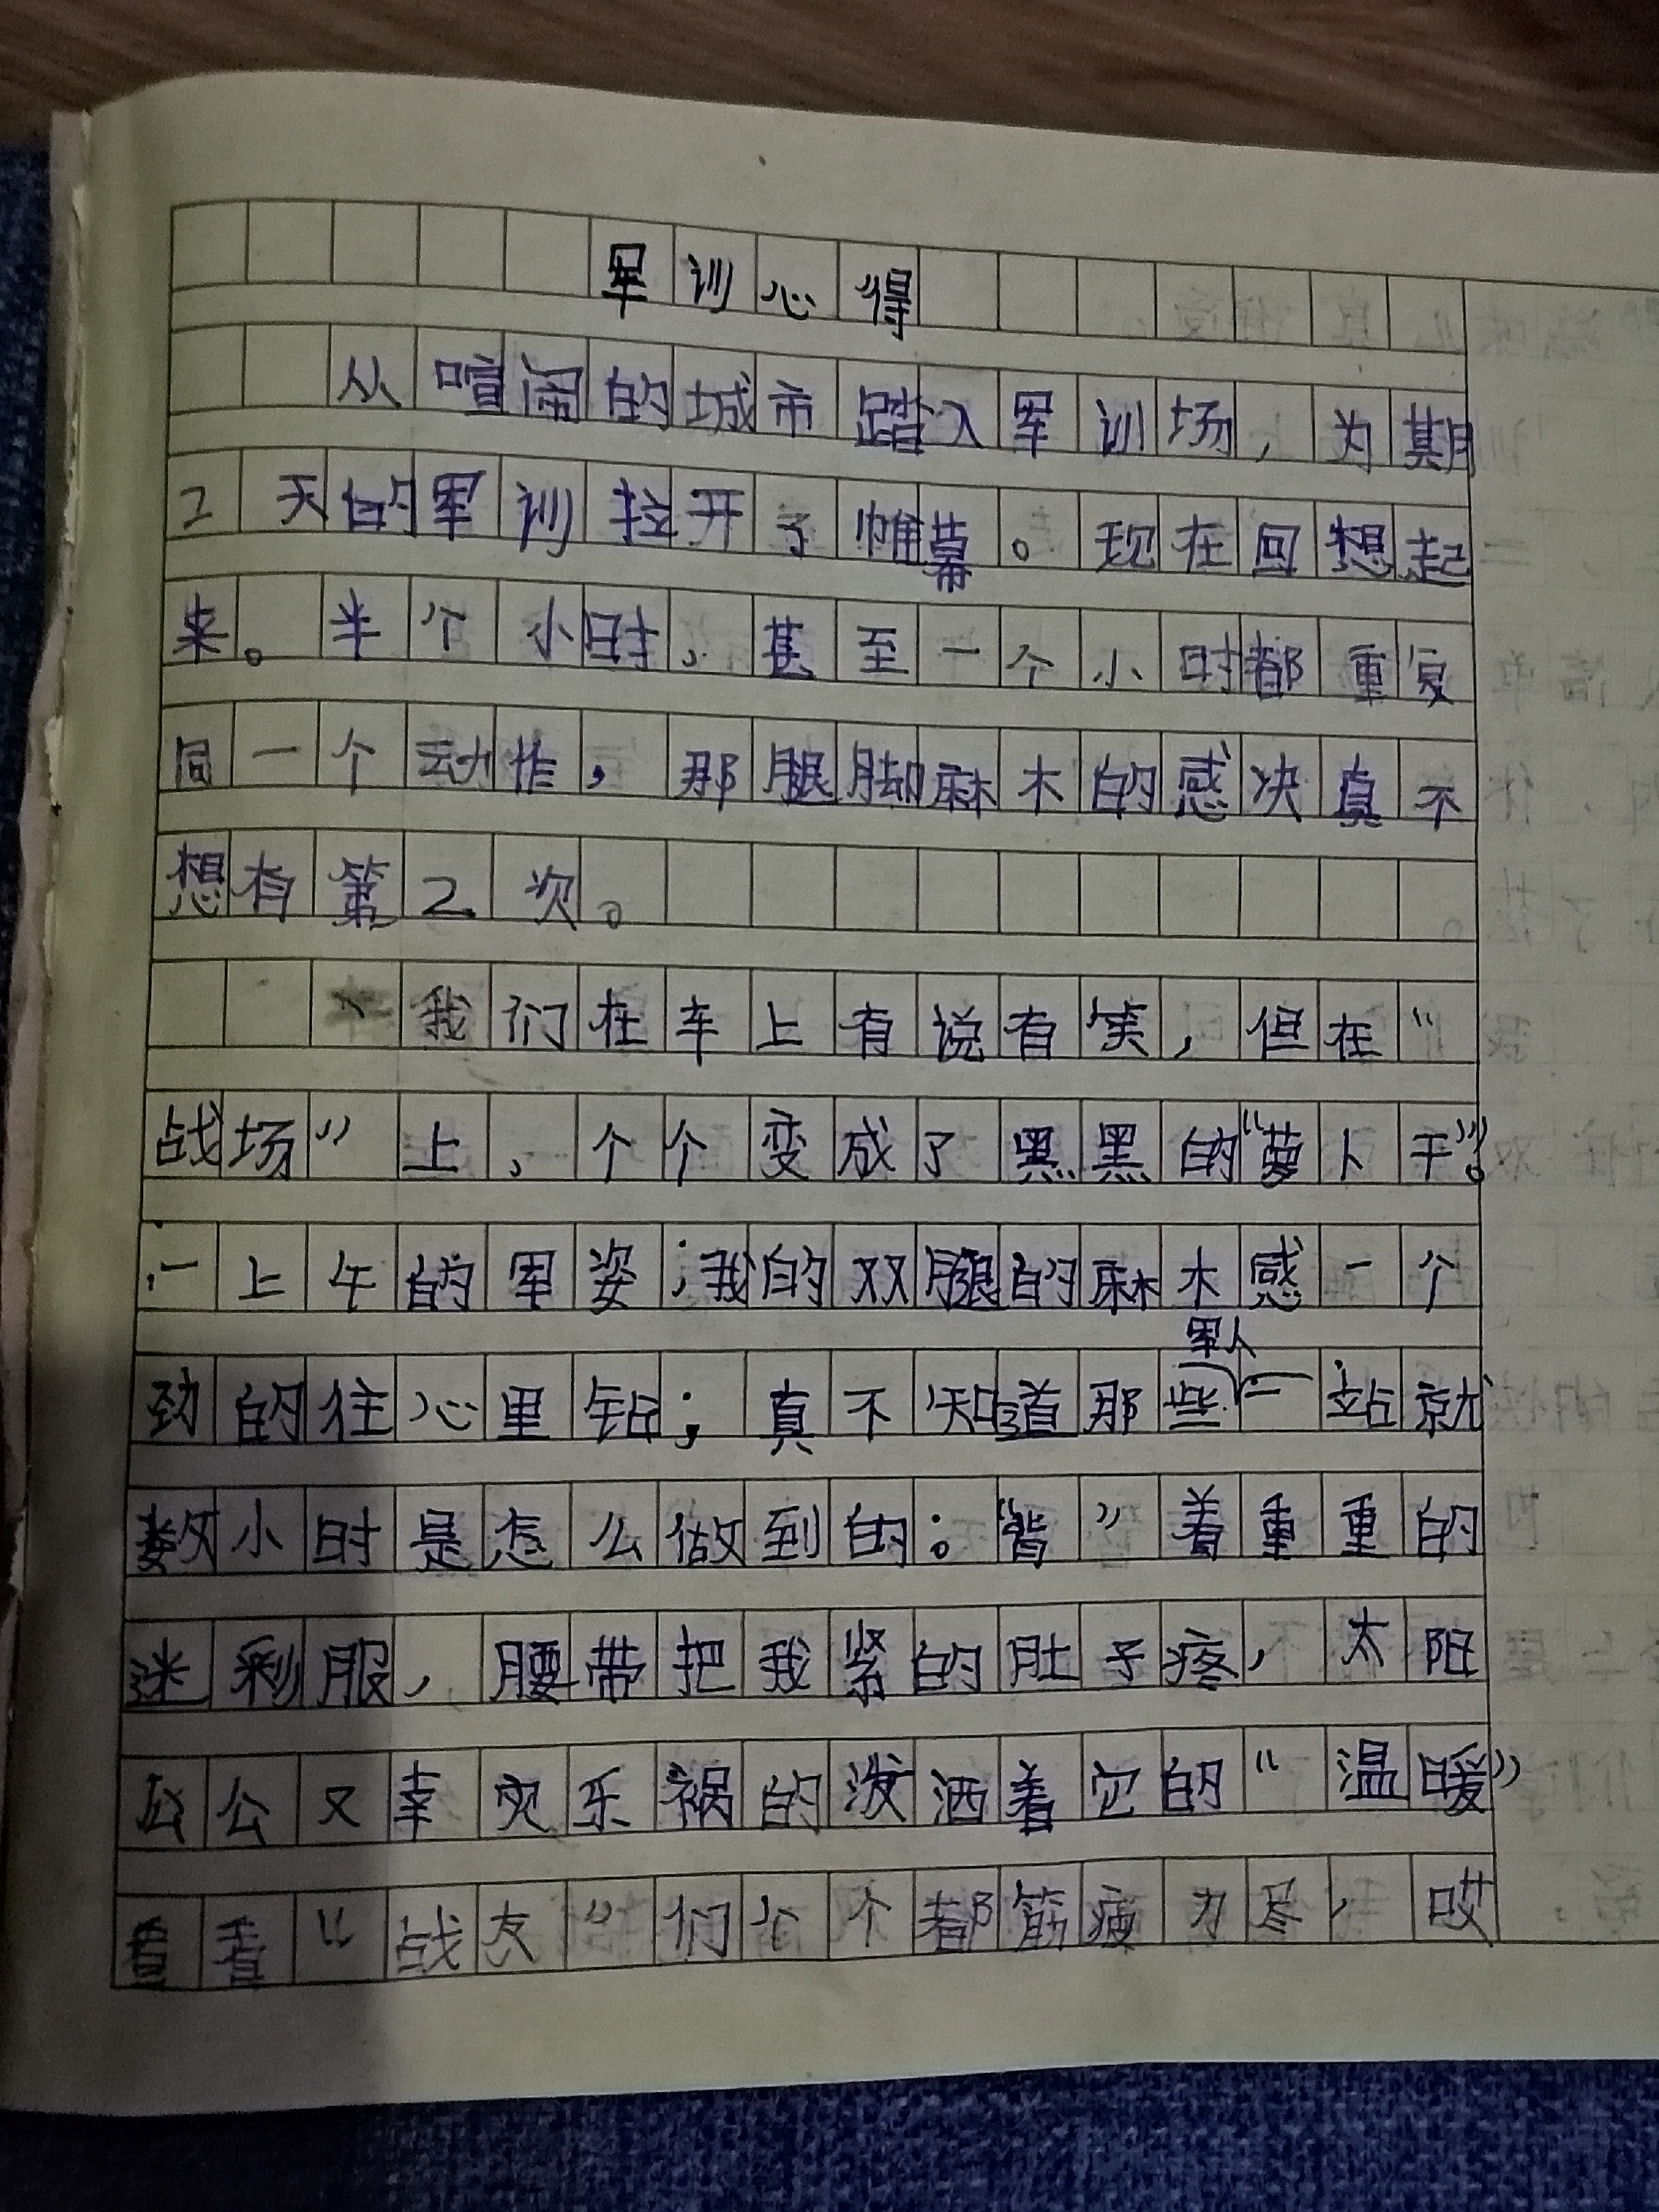 军训心得
从喧闹的城市踏入军训场，为期
2天的军训拉开了帷幕。现在回想起
来。半个小时，甚至一个小时都重复
同一个动作，那腿脚麻木的感决真不
想有第2次。
我们在车上有说有笑，但在“
战场”上，个个变成了黑黑的“萝卜干”。
一上午的军姿；我的双腿的麻木感一个
劲的往心里钻；真不知道那些军人一站就
数小时是怎么做到的：“背”着重重的
迷彩服，腰带把我紧的肚子疼，太阳
公公又幸灾乐祸的泼洒着它的“温暖”
看看“战友”们个个都筋疲力尽，哎